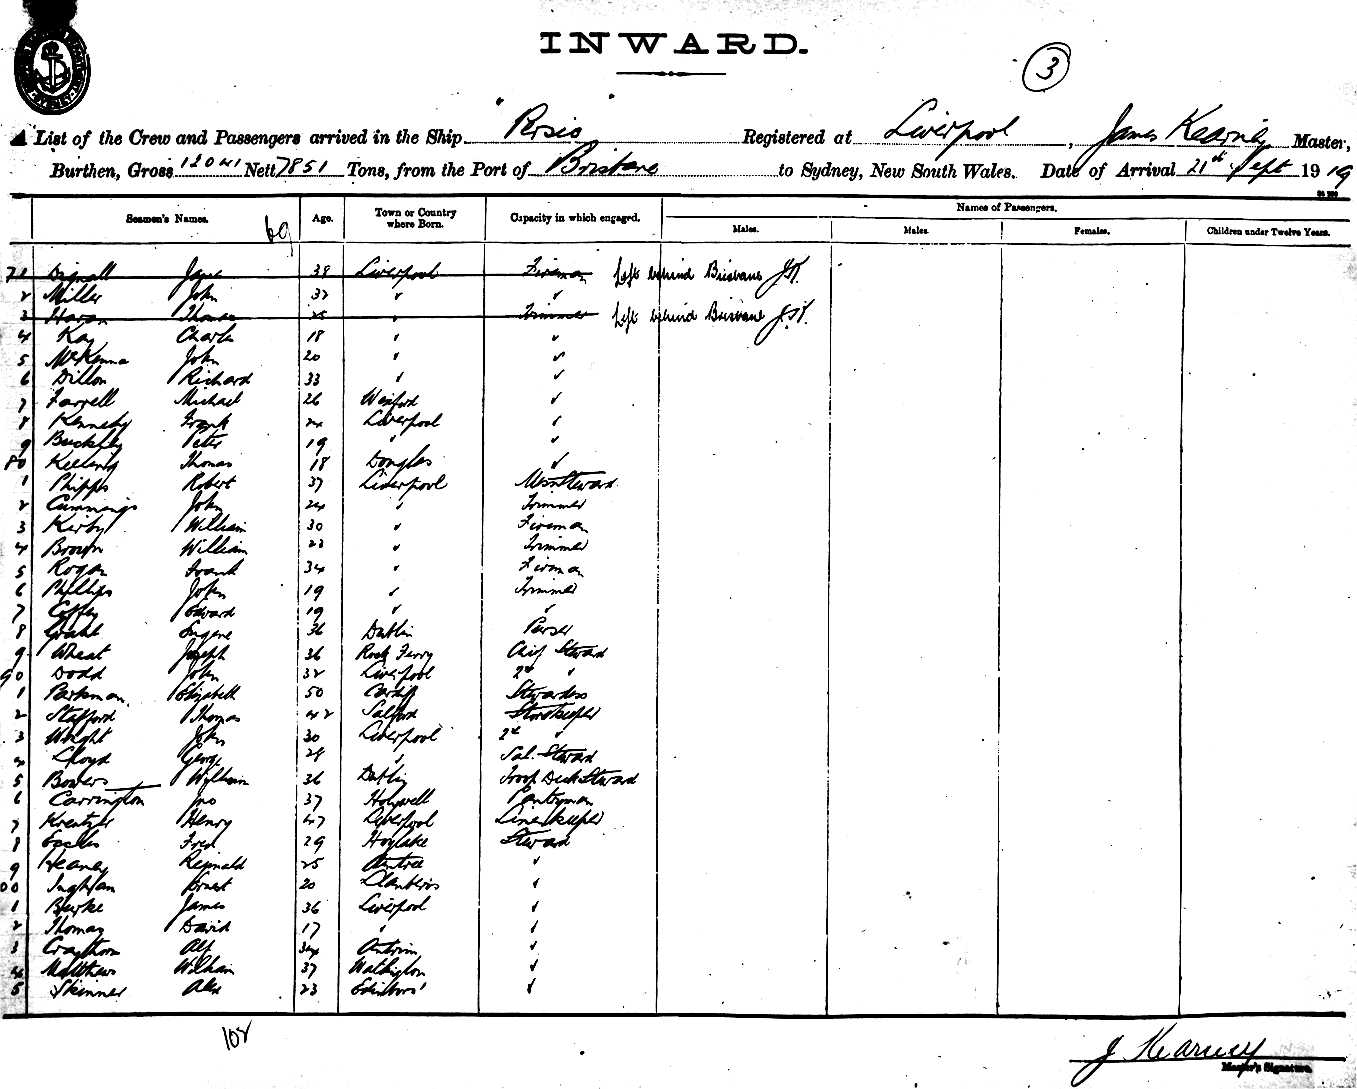 INWARD.
3
List of the Crew and Passengers arrived in the Ship Persic Registered at Liverpool, James Kearney Master,
Burthen, Gross 12041 Nett 7851 Tons, from the Port of Brisbane to Sydney, New South Wales. Date of Arrival 21st Sept 1919
Seamen's Names. 69 Age. Town or Country where Born. Capacity in which engaged. Names of Passengers.
Males. Males. Females. Children under Twelve Years.
71 Dignall 38 Liverpool Fireman Left behind Brisbane J.K.
2 Miller John 32 " "
3 Horan Thomas 25 " Trimmer Left behind Brisbane J.K.
4 Kay Charles 18 " "
5 McKenna John 20 " "
6 Dillon Richard 33 " "
7 Farrell Michael 26 Wexford "
8 Kennedy Frank 24 Liverpool "
9 Buckley Peter 19 " "
80 Thomas 18 Douglas "
1 Phipps Robert 37 Liverpool Mess Steward
2 Cummings John 24 " Trimmer
3 Kirby William 30 " Fireman
4 Brown William 23 " Trimmer
5 Rogan Frank 34 " Fireman
6 Phillips John 19 " Trimmer
7 Coffey Edward 19 " "
8 Eugene 36 Dublin Purser
9 Wheat Joseph 36 Rock Ferry Chief Steward
90 Dodd John 32 Liverpool 2nd "
1 Parkman Elizabeth 50 Cardiff Stewardess
2 Stafford Thomas 42 Salford Storekeeper
3 Wright John 30 Liverpool 2nd "
4 Lloyd George 29 " Sal. Steward
5 Bowers William 36 Dublin Troop Deck Steward
6 Carrington Jno 37 Holywell Pantryman
7 Kreutzer Henry 47 Liverpool Linenkeeper
8 Eccles Fred 29 Hoylake Steward
9 Heaney Reginald 25 Aintree "
00 Ingham Ernest 20 Llanberis "
1 Burke James 36 Liverpool "
2 Thomas David 17 " "
3 Craythorn Alf 34 Antrim "
4 Matthews William 37 "
5 Skinner Alex 23 Edinboro' "
102
J Kearney
Master's Signature.